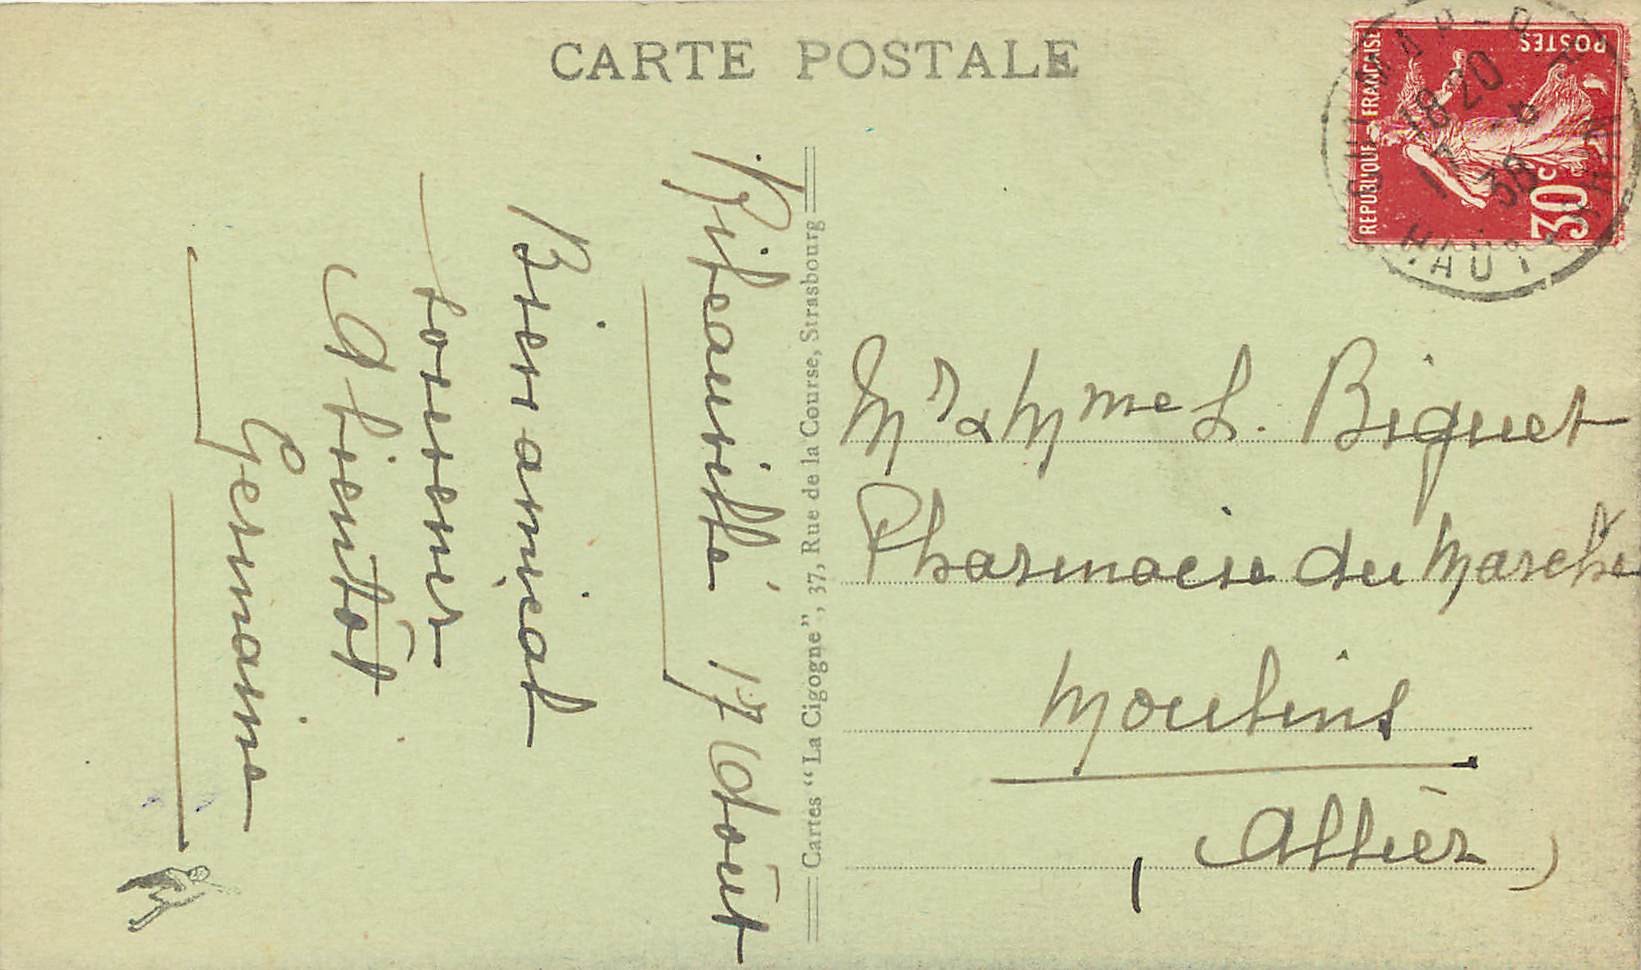 CARTE POSTALE
REPUBLIQUE FRANÇAISE
POSTES
30c
18 20
17 -8
38
HAUT
Ribeauvillé 17 Août
Bien amical
souvenir
A bientôt
Germaine
Cartes "La Cigogne", 37, Rue de la Course, Strasbourg
Mr & Mme L. Biguet
Pharmacie du Marché
Moulins
(Allier)